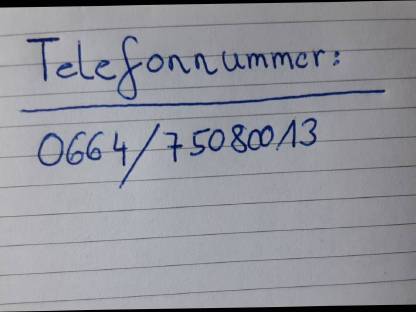 Telefonnummer:
0664/75080013